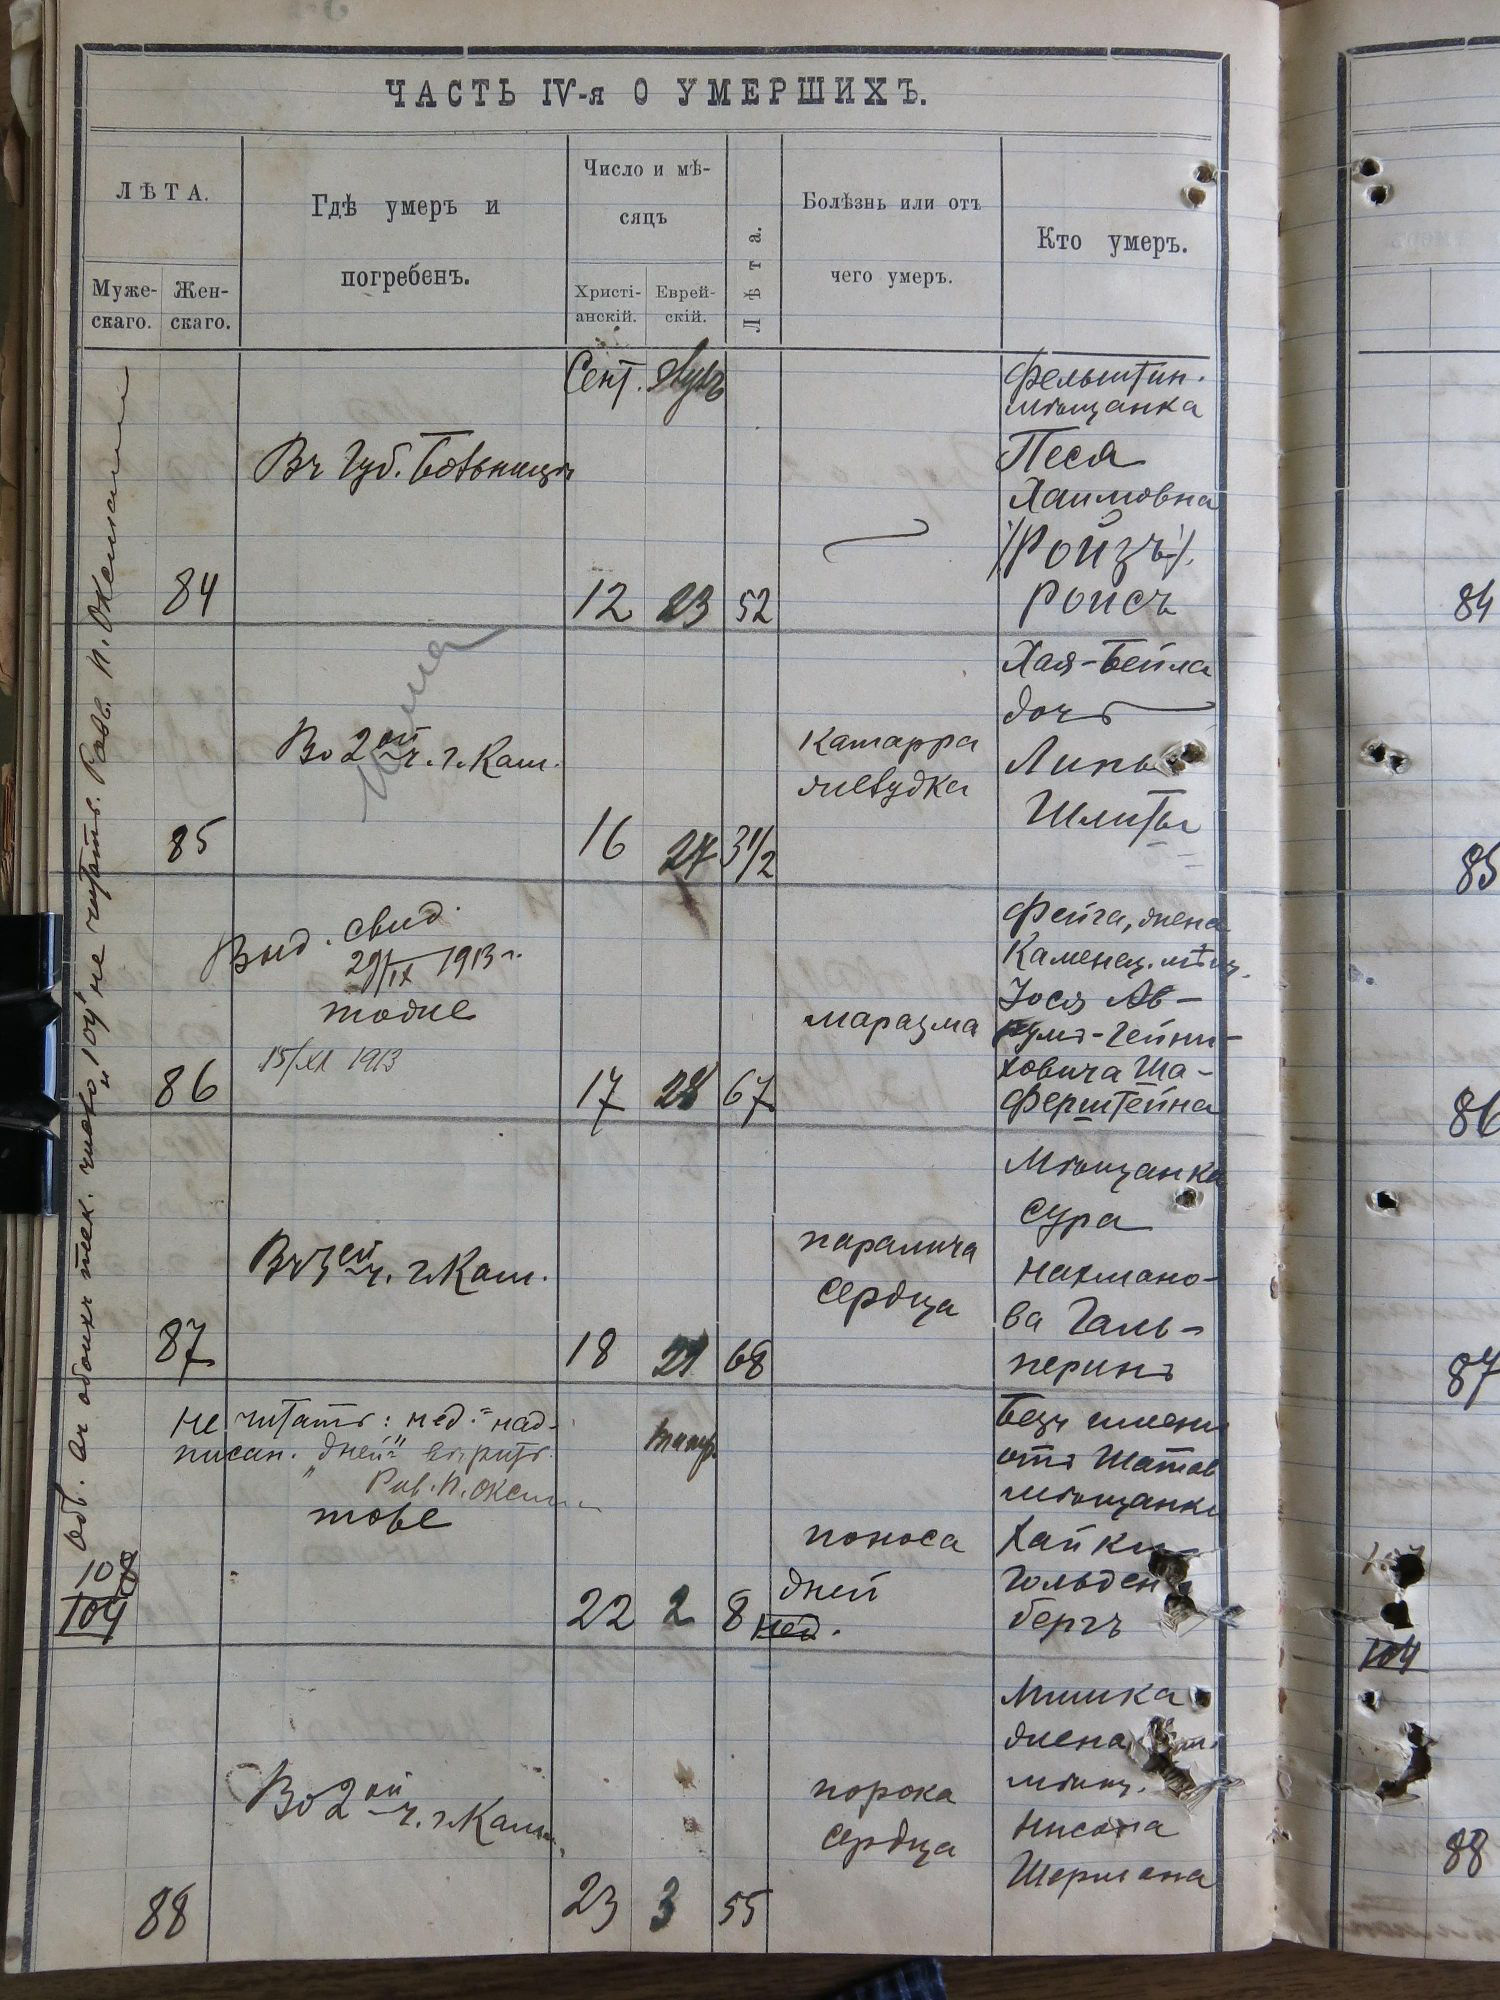 ЧАСТЬ IV-я О УМЕРШИХЪ.
ЛѢТА.
Муже-
скаго.
Жен-
скаго.
Гдѣ умеръ и
погребенъ.
Число и мѣ-
сяцъ
Христі-
анскій.
Еврей-
скій.
Лѣта.
Болѣзнь или отъ
чего умеръ.
Кто умеръ.
Сент.
84
Въ Губ. Больницѣ
12
23
52
Фельштин.
мѣщанка
Песя
Хаимовна
/Ройзъ/.
Ройсъ
85
Во 2ой ч. г. Кам.
16
27
3 1/2
катарра
желудка
Хая-Бейла
дочь
Липы
Шлиты
86
Выд. свид.
29/IX 1913 г.
тодие
15/XI 1913
17
28
67
маразма
Фейга, жена
Каменец. мѣщ.
Іося Ав-
румъ-Гейни-
ховича Ша-
ферштейна
87
Въ 3ей ч. г. Кам.
18
29
68
паралича
сердца
Мѣщанка
Сура
Нахмано-
ва Галь-
перинъ
не читать: "нед." над-
писан. "дней" вѣрить.
Рав. П. Оксман
тове
104
22
2
8
дней
нед.
поноса
Безъ имени
отъ
мѣщанки
Хайки
Гольден
бергъ
88
Во 2ой ч. г. Кам.
23
3
55
порока
сердца
жена
мѣщ.
Нисона
Шермана
Рав. П. Оксман
84
85
86
87
104
88